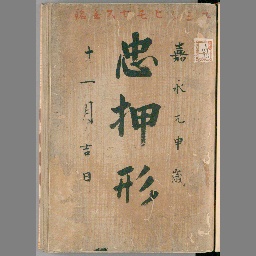 嘉永元申歳
忠押形
十一月吉日